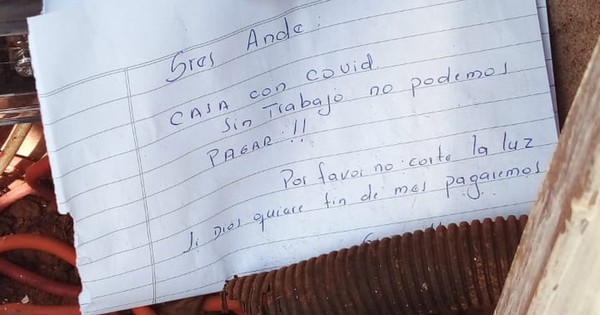 Sres Ande:
CASA con covid
Sin Trabajo no podemos
PAGAR !!
Por favor no corte la luz
Si Dios quiere fin de mes pagaremos